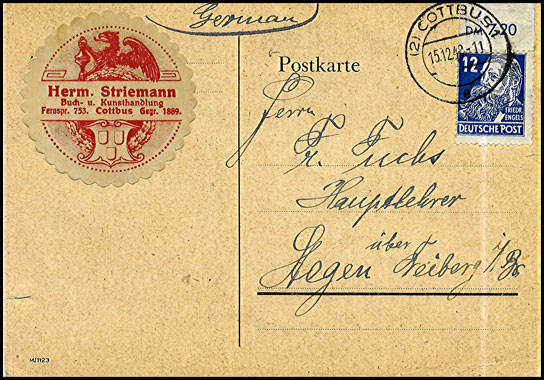 German
Herm. Striemann
Buch- u. Kunsthandlung
Fernspr. 753. Cottbus Gegr. 1889.
Postkarte
(2) COTTBUS 1
15.12.48-11
DM 1,20
12
FRIEDR.
ENGELS
DEUTSCHE POST
Herrn
Fr. Fuchs
Hauptlehrer
über
Hagen Freiberg i/Br
M/1123